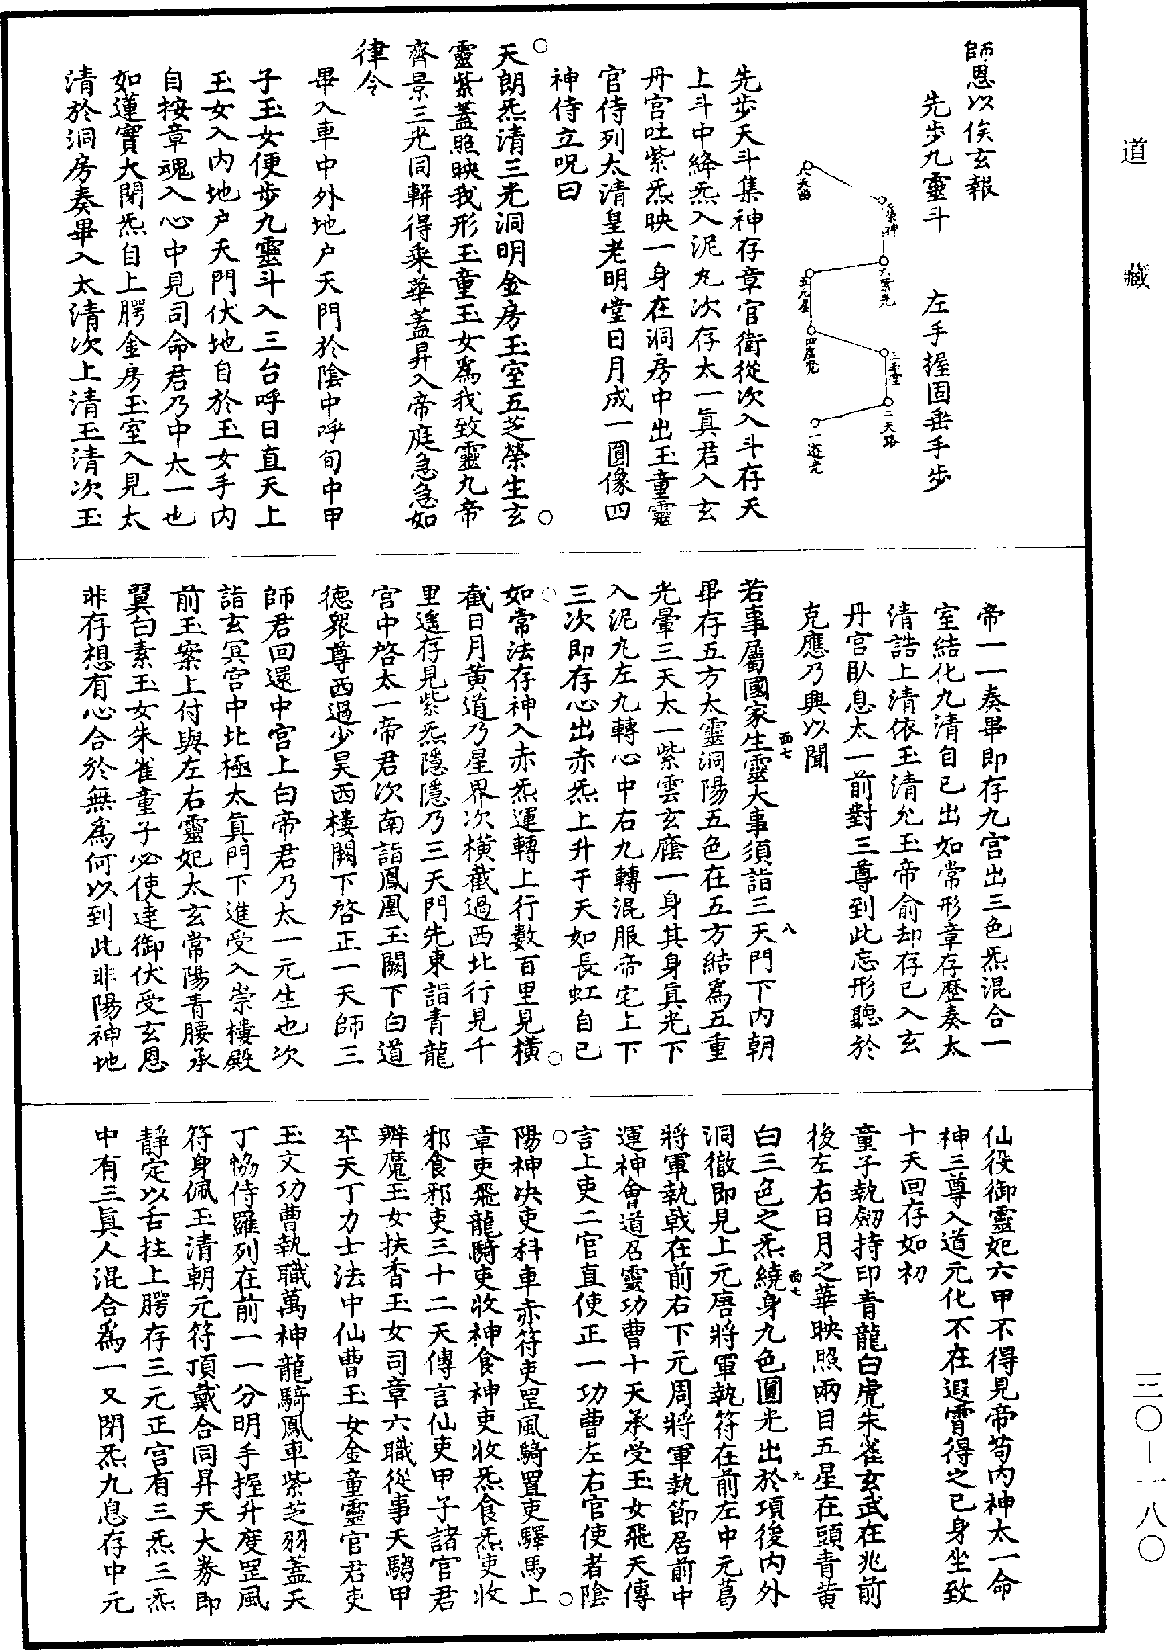 道藏
師恩以俟玄報
先步九靈斗　左手握固垂手步
一遊光
二天路
三玉堂
四虛元
五九壘
六紫光
七集神
先步天斗集神存章官衛從次入斗存天
上斗中絳炁入泥丸次存太一眞君入玄
丹宮吐紫炁映一身在洞房中出玉童靈
官侍列太清皇老明堂日月成一圓像四
神侍立呪曰
天朗炁清三光洞明金房玉室五芝榮生玄
靈紫蓋照映我形玉童玉女爲我致靈九帝
齊景三光同軿得乘華蓋昇入帝庭急急如
律令
畢入車中外地户天門於陰中呼旬中甲
子玉女便步九靈斗入三台呼日直天上
玉女入內地户天門伏地自於玉女手內
自按章魂入心中見司命君乃中太一也
如蓮實大閉炁自上腭金房玉室入見太
清於洞房奏畢入太清次上清玉清次玉
帝一一奏畢即存九宮出三色炁混合一
室結化九清自己出如常形章存歷奏太
清誥上清依玉清允玉帝俞却存已入玄
丹宮臥息太一前對三尊到此忘形聽於
克應乃興以聞
若事屬國家生靈大事須詣三天門下內朝
畢存五方太靈洞陽五色在五方結爲五重
光暈三天太一紫雲玄蔭一身其身眞光下
入泥丸左九轉心中右九轉混服帝宅上下
三次即存心出赤炁上升于天如長虹自已
如常法存神入赤炁運轉上行數百里見橫
截日月黃道乃星界次橫截過西北行見千
里遙存見紫炁隱隱乃三天門先東詣青龍
宮中啓太一帝君次南詣鳳凰玉闕下白道
德衆尊西過少昊西樓闕下啓正一天師三
師君回還中宮上白帝君乃太一元生也次
詣玄冥宮中北極太眞門下進受入崇樓殿
前玉案上付與左右靈妃太玄常陽青腰承
翼白素玉女朱雀童子必使達御伏受玄恩
非存想有心合於無爲何以到此非陽神地
仙役御靈妃六甲不得見帝苟內神太一命
神三尊入道元化不在遐霄得之已身坐致
十天回存如初
童子執劒持印青龍白虎朱雀玄武在兆前
後左右日月之華映照兩目五星在頭青黃
白三色之炁繞身九色圓光出於項後內外
洞徹即見上元唐將軍執符在前左中元葛
將軍執戟在前右下元周將軍執節居前中
運神會道召靈功曹十天承受玉女飛天傳
言上吏二官直使正一功曹左右官使者陰
陽神决吏科車赤符吏罡風騎置吏驛馬上
章吏飛龍騎吏收神食神吏收炁食炁吏收
邪食邪吏三十二天傳言仙吏甲子諸官君
辨魔玉女扶香玉女司章六職從事天騶甲
卒天丁力士法中仙曹玉女金童靈官君吏
玉文功曹執職萬神龍騎鳳車紫芝羽蓋天
丁恊侍羅列在前一一分明手握升度罡風
符身佩玉清朝元符頂戴合同昇天大券即
靜定以舌拄上腭存三元正宮有三炁三炁
中有三眞人混合爲一又閉炁九息存中元
三〇—一八〇